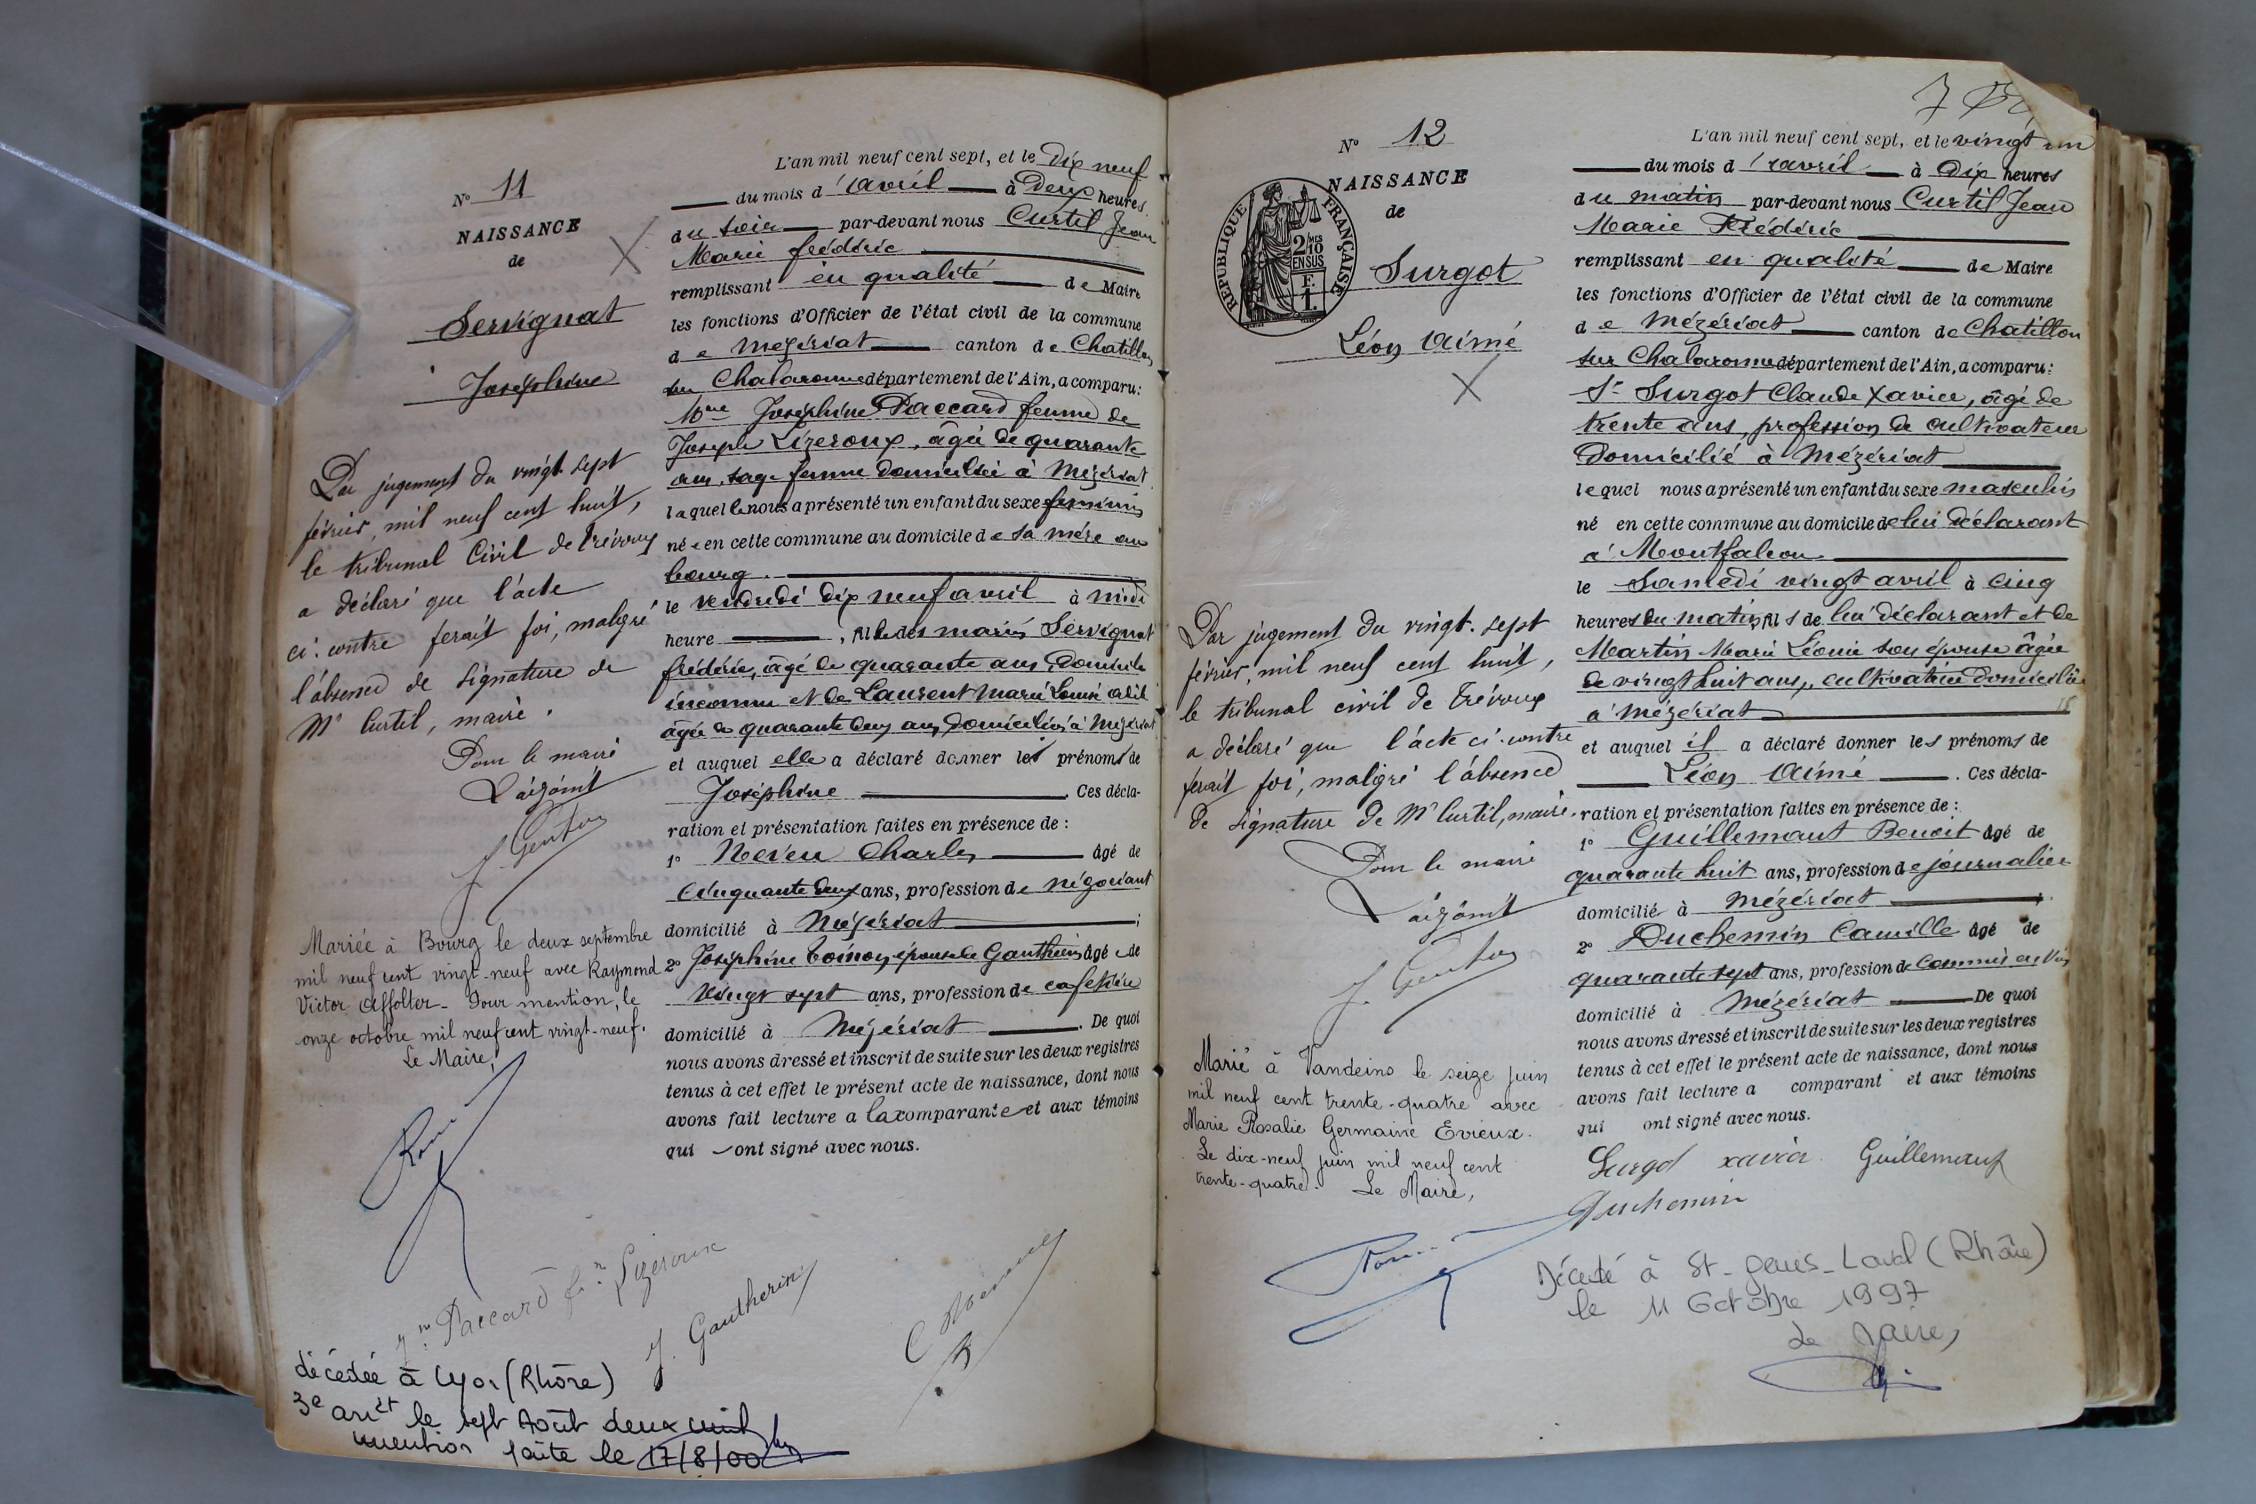 N° 11
NAISSANCE
de
Servignat
Joséphine
Par jugement du vingt-sept
février, mil neuf cent huit,
le tribunal Civil de Trévoux
a déclaré que l'acte
ci-contre ferait foi, malgré
l'absence de signature de
Mr Curtil, maire.
Pour le maire
L'adjoint
Mariée à Bourg le deux septembre
mil neuf cent vingt-neuf avec Raymond
Victor Affolter - Pour mention, le
onze octobre mil neuf cent vingt-neuf.
Le Maire,
L'an mil neuf cent sept, et le dix neuf
du mois d'avril à Deux heures
du soir par-devant nous Curtil Jean
Marie frédéric
remplissant en qualité de Maire
les fonctions d'Officier de l'état civil de la commune
de Mézériat canton de Chatillon
sur Chalaronne département de l'Ain, a comparu:
Mme Joséphine Paccard femme de
Joseph Lizeroux, âgée de quarante
ans, sage femme domiciliée à Mézériat
laquelle nous a présenté un enfant du sexe féminin
née en cette commune au domicile de sa mère au
bourg.
le vendredi dix neuf avril à midi
heure , fille des mariés Servignat
frédéric, âgé de quarante ans, domicile
inconnu et de Laurent Marie Louise
âgée de quarante deux ans, domiciliée à Mézériat
et auquel elle a déclaré donner les prénoms de
Joséphine . Ces décla-
ration et présentation faites en présence de :
1° Neveu Charles âgé de
cinquante deux ans, profession de négociant
domicilié à Mézériat ;
2° Joséphine Toinon épouse de Gautherin âgée de
vingt sept ans, profession de cafetière
domicilié à Mézériat . De quoi
nous avons dressé et inscrit de suite sur les deux registres
tenus à cet effet le présent acte de naissance, dont nous
avons fait lecture a la comparante et aux témoins
qui ont signé avec nous.
Paccard fe Lizeroux
J. Gautherin
décédée à Lyon (Rhône)
3e arrt le sept Août deux mil
mention faite le 17/8/00
N° 12
NAISSANCE
de
RÉPUBLIQUE FRANÇAISE
2/10 MES
EN SUS
F.
1
Surgot
Léon Aimé
Par jugement du vingt-sept
février, mil neuf cent huit,
le tribunal civil de Trévoux
a déclaré que l'acte ci-contre
ferait foi, malgré l'absence
de signature de Mr Curtil, maire.
Pour le maire
L'adjoint
Marié à Vandeins le seize juin
mil neuf cent trente-quatre avec
Marie Rosalie Germaine Evieux.
Le dix-neuf juin mil neuf cent
trente-quatre. Le Maire,
L'an mil neuf cent sept, et le vingt un
du mois d'avril à dix heures
du matin par-devant nous Curtil Jean
Marie Frédéric
remplissant en qualité de Maire
les fonctions d'Officier de l'état civil de la commune
de Mézériat canton de Chatillon
sur Chalaronne département de l'Ain, a comparu:
Sr Surgot Claude Xavier, âgé de
trente ans, profession de cultivateur
Domicilié à Mézériat
lequel nous a présenté un enfant du sexe masculin
né en cette commune au domicile de lui déclarant
à Montfalcon
le Samedi vingt avril à cinq
heures du matin, fils de lui déclarant et de
Martin Marie Léonie son épouse âgée
de vingt huit ans, cultivatrice domiciliée
à Mézériat
et auquel il a déclaré donner les prénoms de
Léon Aimé . Ces décla-
ration et présentation faites en présence de :
1° Guillemaut Benoit âgé de
quarante huit ans, profession de journalier
domicilié à Mézériat ;
2° Duchemin Camille âgé de
quarante sept ans, profession de commis en vins
domicilié à Mézériat De quoi
nous avons dressé et inscrit de suite sur les deux registres
tenus à cet effet le présent acte de naissance, dont nous
avons fait lecture a comparant et aux témoins
qui ont signé avec nous.
Surgot xavier Guillemaut
Duchemin
Décédé à St-Genis-Laval (Rhône)
le 11 Octobre 1997
Le Maire,